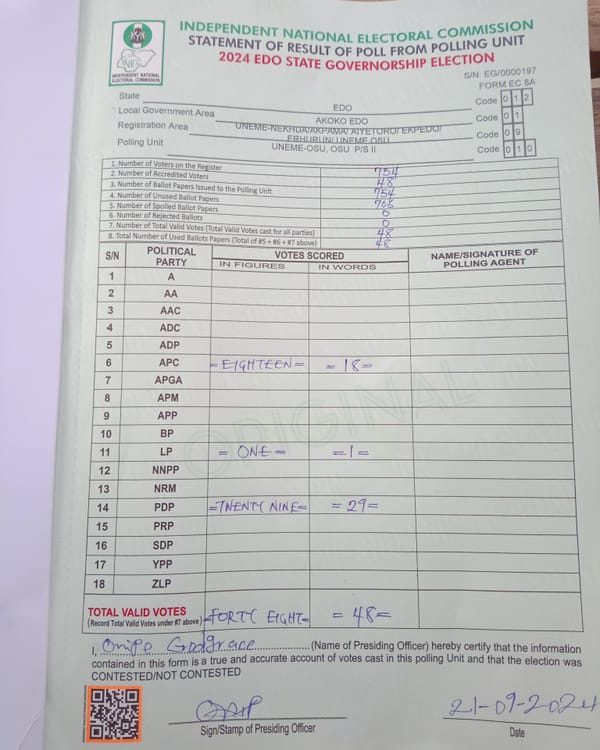 INDEPENDENT NATIONAL ELECTORAL COMMISSION
STATEMENT OF RESULT OF POLL FROM POLLING UNIT
2024 EDO STATE GOVERNORSHIP ELECTION
INEC
INDEPENDENT NATIONAL
ELECTORAL COMMISSION
S/N: EG/0000197
FORM EC 8A
State EDO Code 0 1 2
Local Government Area AKOKO EDO Code 0 1
Registration Area UNEME-NEKHUA/AKPAMA/ AIYETORO/ EKPEDO/ ERHURUN/ UNEME OSU Code 0 9
Polling Unit UNEME-OSU, OSU P/S II Code 0 1 0
1. Number of Voters on the Register 754
2. Number of Accredited Voters 48
3. Number of Ballot Papers Issued to the Polling Unit 754
4. Number of Unused Ballot Papers 706
5. Number of Spoiled Ballot Papers 0
6. Number of Rejected Ballots 0
7. Number of Total Valid Votes (Total Valid Votes cast for all parties) 48
8. Total Number of Used Ballots Papers (Total of #5 + #6 + #7 above) 48
S/N POLITICAL PARTY VOTES SCORED NAME/SIGNATURE OF POLLING AGENT
IN FIGURES IN WORDS
1 A
2 AA
3 AAC
4 ADC
5 ADP
6 APC =EIGHTEEN= =18=
7 APGA
8 APM
9 APP
10 BP
11 LP =ONE= =1=
12 NNPP
13 NRM
14 PDP =TWENTY NINE= =29=
15 PRP
16 SDP
17 YPP
18 ZLP
ORIGINAL
TOTAL VALID VOTES
(Record Total Valid Votes under #7 above) =FORTY EIGHT= =48=
I, Omipe Godgrace (Name of Presiding Officer) hereby certify that the information
contained in this form is a true and accurate account of votes cast in this polling Unit and that the election was
CONTESTED/NOT CONTESTED
21-09-2024
Sign/Stamp of Presiding Officer Date